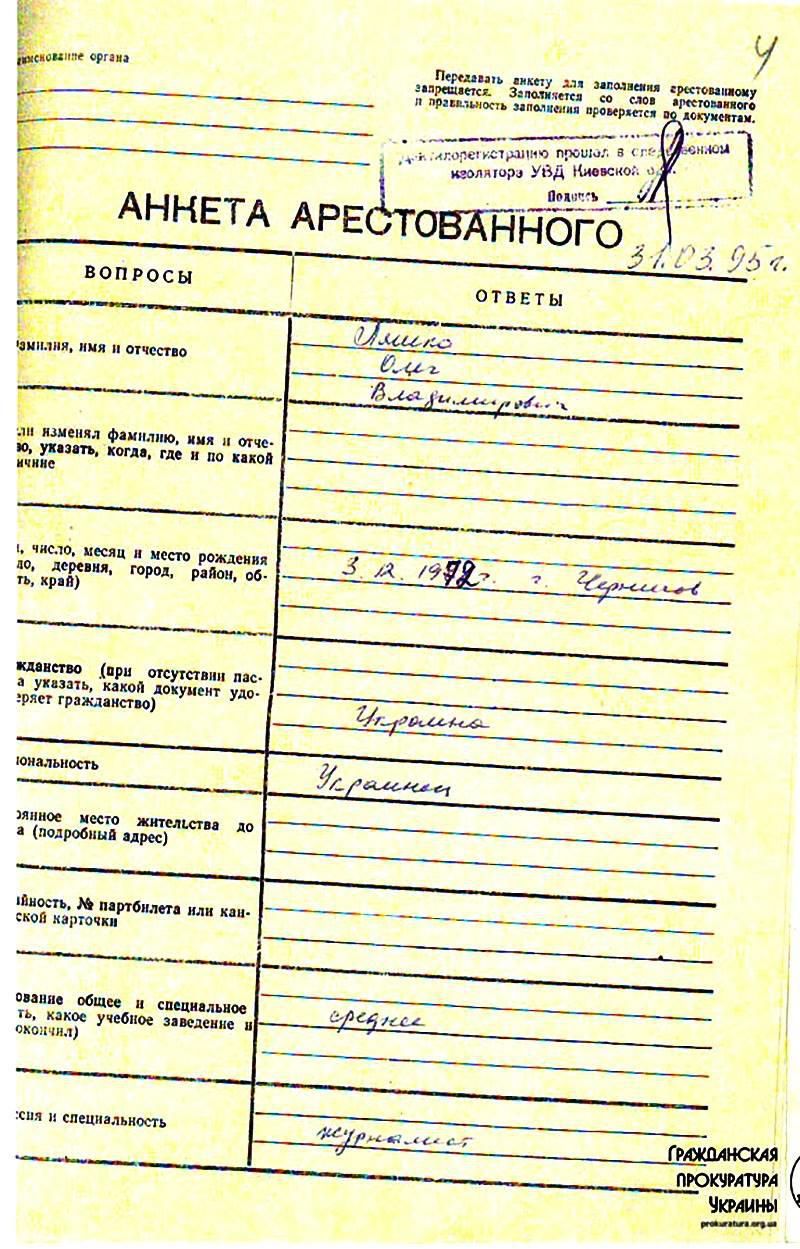 4
именование органа
Передавать анкету для заполнения арестованному
запрещается. Заполняется со слов арестованного
и правильность заполнения проверяется по документам.
Дактилорегистрацию прошел в следственном
изоляторе УВД Киевской обл.
Подпись
АНКЕТА АРЕСТОВАННОГО
31.03.95г.
ВОПРОСЫ
ОТВЕТЫ
амилия, имя и отчество
Ляшко
Олег
Владимирович
ли изменял фамилию, имя и отче-
во, указать, когда, где и по какой
ичине
, число, месяц и место рождения
ло, деревня, город, район, об-
ть, край)
3.12.1972г. г. Чернигов
жданство (при отсутствии пас-
а указать, какой документ удо-
еряет гражданство)
Украина
иональность
Украинец
оянное место жительства до
а (подробный адрес)
йность, № партбилета или кан-
ской карточки
ование общее и специальное
ть, какое учебное заведение и
окончил)
среднее
ссия и специальность
журналист
ГРАЖДАНСКАЯ
ПРОКУРАТУРА
УКРАИНЫ
prokuratura.org.ua